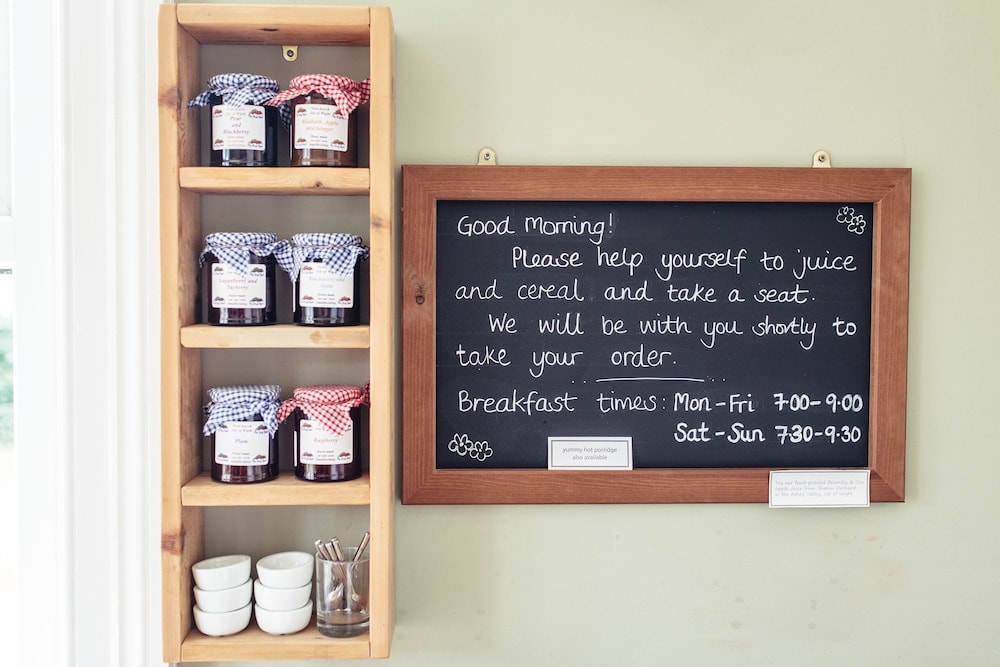 Pear
and
Blackberry
Rhubarb, Apple
and Ginger
Loganberry and
Tayberry
Blackberry and
Apple
Plum
Raspberry
Good Morning!
Please help yourself to juice
and cereal and take a seat.
We will be with you shortly to
take your order.
Breakfast times: Mon-Fri 7.00-9.00
Sat-Sun 7.30-9.30
yummy hot porridge
also available